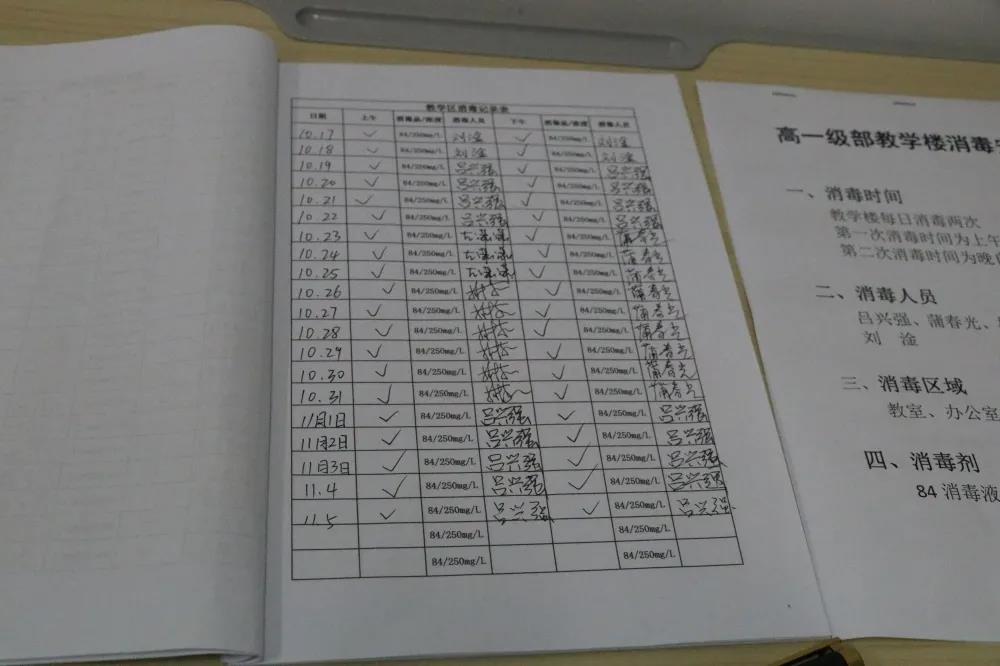 教学区消毒记录表
日期 上午 消毒品/浓度 消毒人员 下午 消毒品/浓度 消毒人员
10.17 ✓ 84/250mg/L 刘淦 ✓ 84/250mg/L 刘淦
10.18 ✓ 84/250mg/L 刘淦 ✓ 84/250mg/L 刘淦
10.19 ✓ 84/250mg/L 吕兴强 ✓ 84/250mg/L 吕兴强
10.20 ✓ 84/250mg/L 吕兴强 ✓ 84/250mg/L 吕兴强
10.21 ✓ 84/250mg/L 吕兴强 ✓ 84/250mg/L 吕兴强
10.22 ✓ 84/250mg/L 吕兴强 ✓ 84/250mg/L 吕兴强
10.23 ✓ 84/250mg/L ✓ 84/250mg/L 蒲春光
10.24 ✓ 84/250mg/L ✓ 84/250mg/L 蒲春光
10.25 ✓ 84/250mg/L ✓ 84/250mg/L 蒲春光
10.26 ✓ 84/250mg/L ✓ 84/250mg/L 蒲春光
10.27 ✓ 84/250mg/L ✓ 84/250mg/L 蒲春光
10.28 ✓ 84/250mg/L ✓ 84/250mg/L 蒲春光
10.29 ✓ 84/250mg/L ✓ 84/250mg/L 蒲春光
10.30 ✓ 84/250mg/L ✓ 84/250mg/L 蒲春光
10.31 ✓ 84/250mg/L ✓ 84/250mg/L 蒲春光
11月1日 ✓ 84/250mg/L 吕兴强 ✓ 84/250mg/L 吕兴强
11月2日 ✓ 84/250mg/L 吕兴强 ✓ 84/250mg/L 吕兴强
11月3日 ✓ 84/250mg/L 吕兴强 ✓ 84/250mg/L 吕兴强
11.4 ✓ 84/250mg/L 吕兴强 ✓ 84/250mg/L 吕兴强
11.5 ✓ 84/250mg/L 吕兴强 ✓ 84/250mg/L 吕兴强
84/250mg/L 84/250mg/L
84/250mg/L 84/250mg/L
高一级部教学楼消毒
一、消毒时间
教学楼每日消毒两次
第一次消毒时间为上午
第二次消毒时间为晚
二、消毒人员
吕兴强、蒲春光、
刘 淦
三、消毒区域
教室、办公室
四、消毒剂
84 消毒液